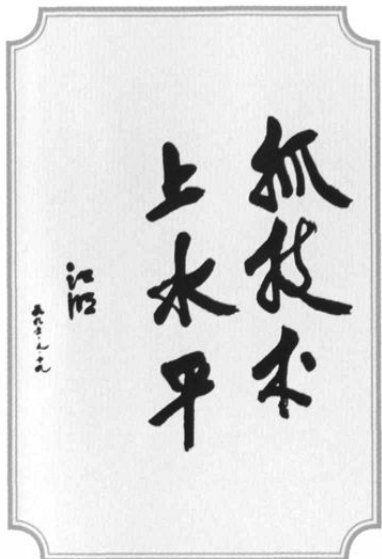 抓技术
上水平
江明